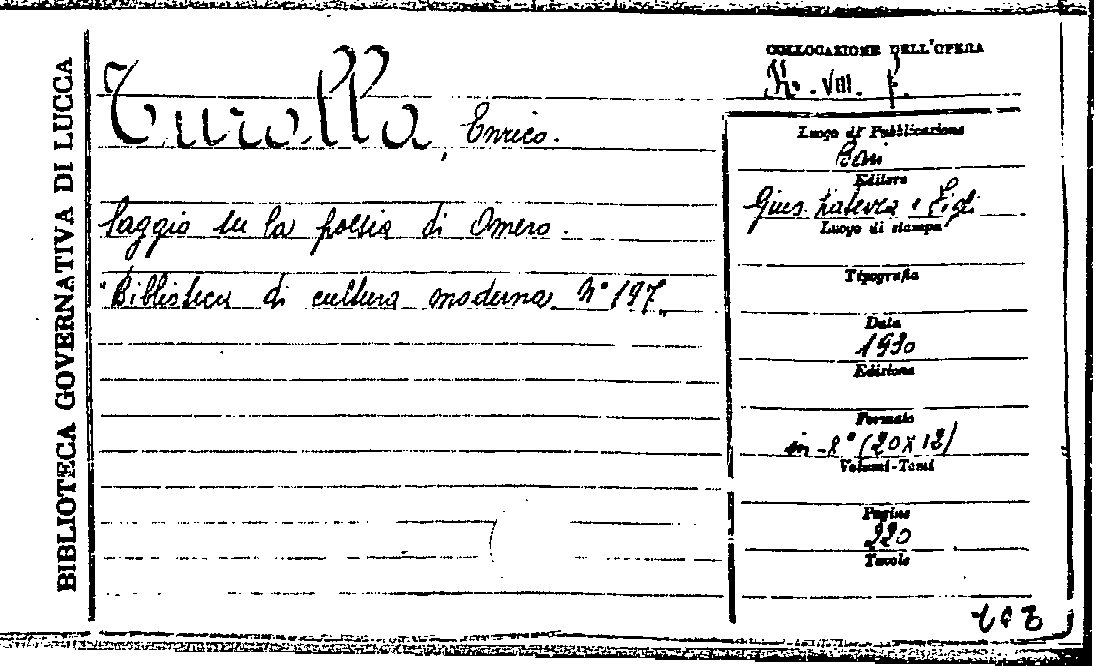 BIBLIOTECA GOVERNATIVA DI LUCCA
Turolla, Enrico.
Saggio su la poesia di Omero.
"Biblioteca di cultura moderna N° 197"
COLLOCAZIONE DELL'OPERA
VIII.
Luogo di Pubblicazione
Bari
Editore
Gius. Laterza e Figli
Luogo di stampa
Tipografia
Data
1930
Edizione
Formato
in-8° (20x12)
Volumi-Tomi
Pagine
220
Tavole